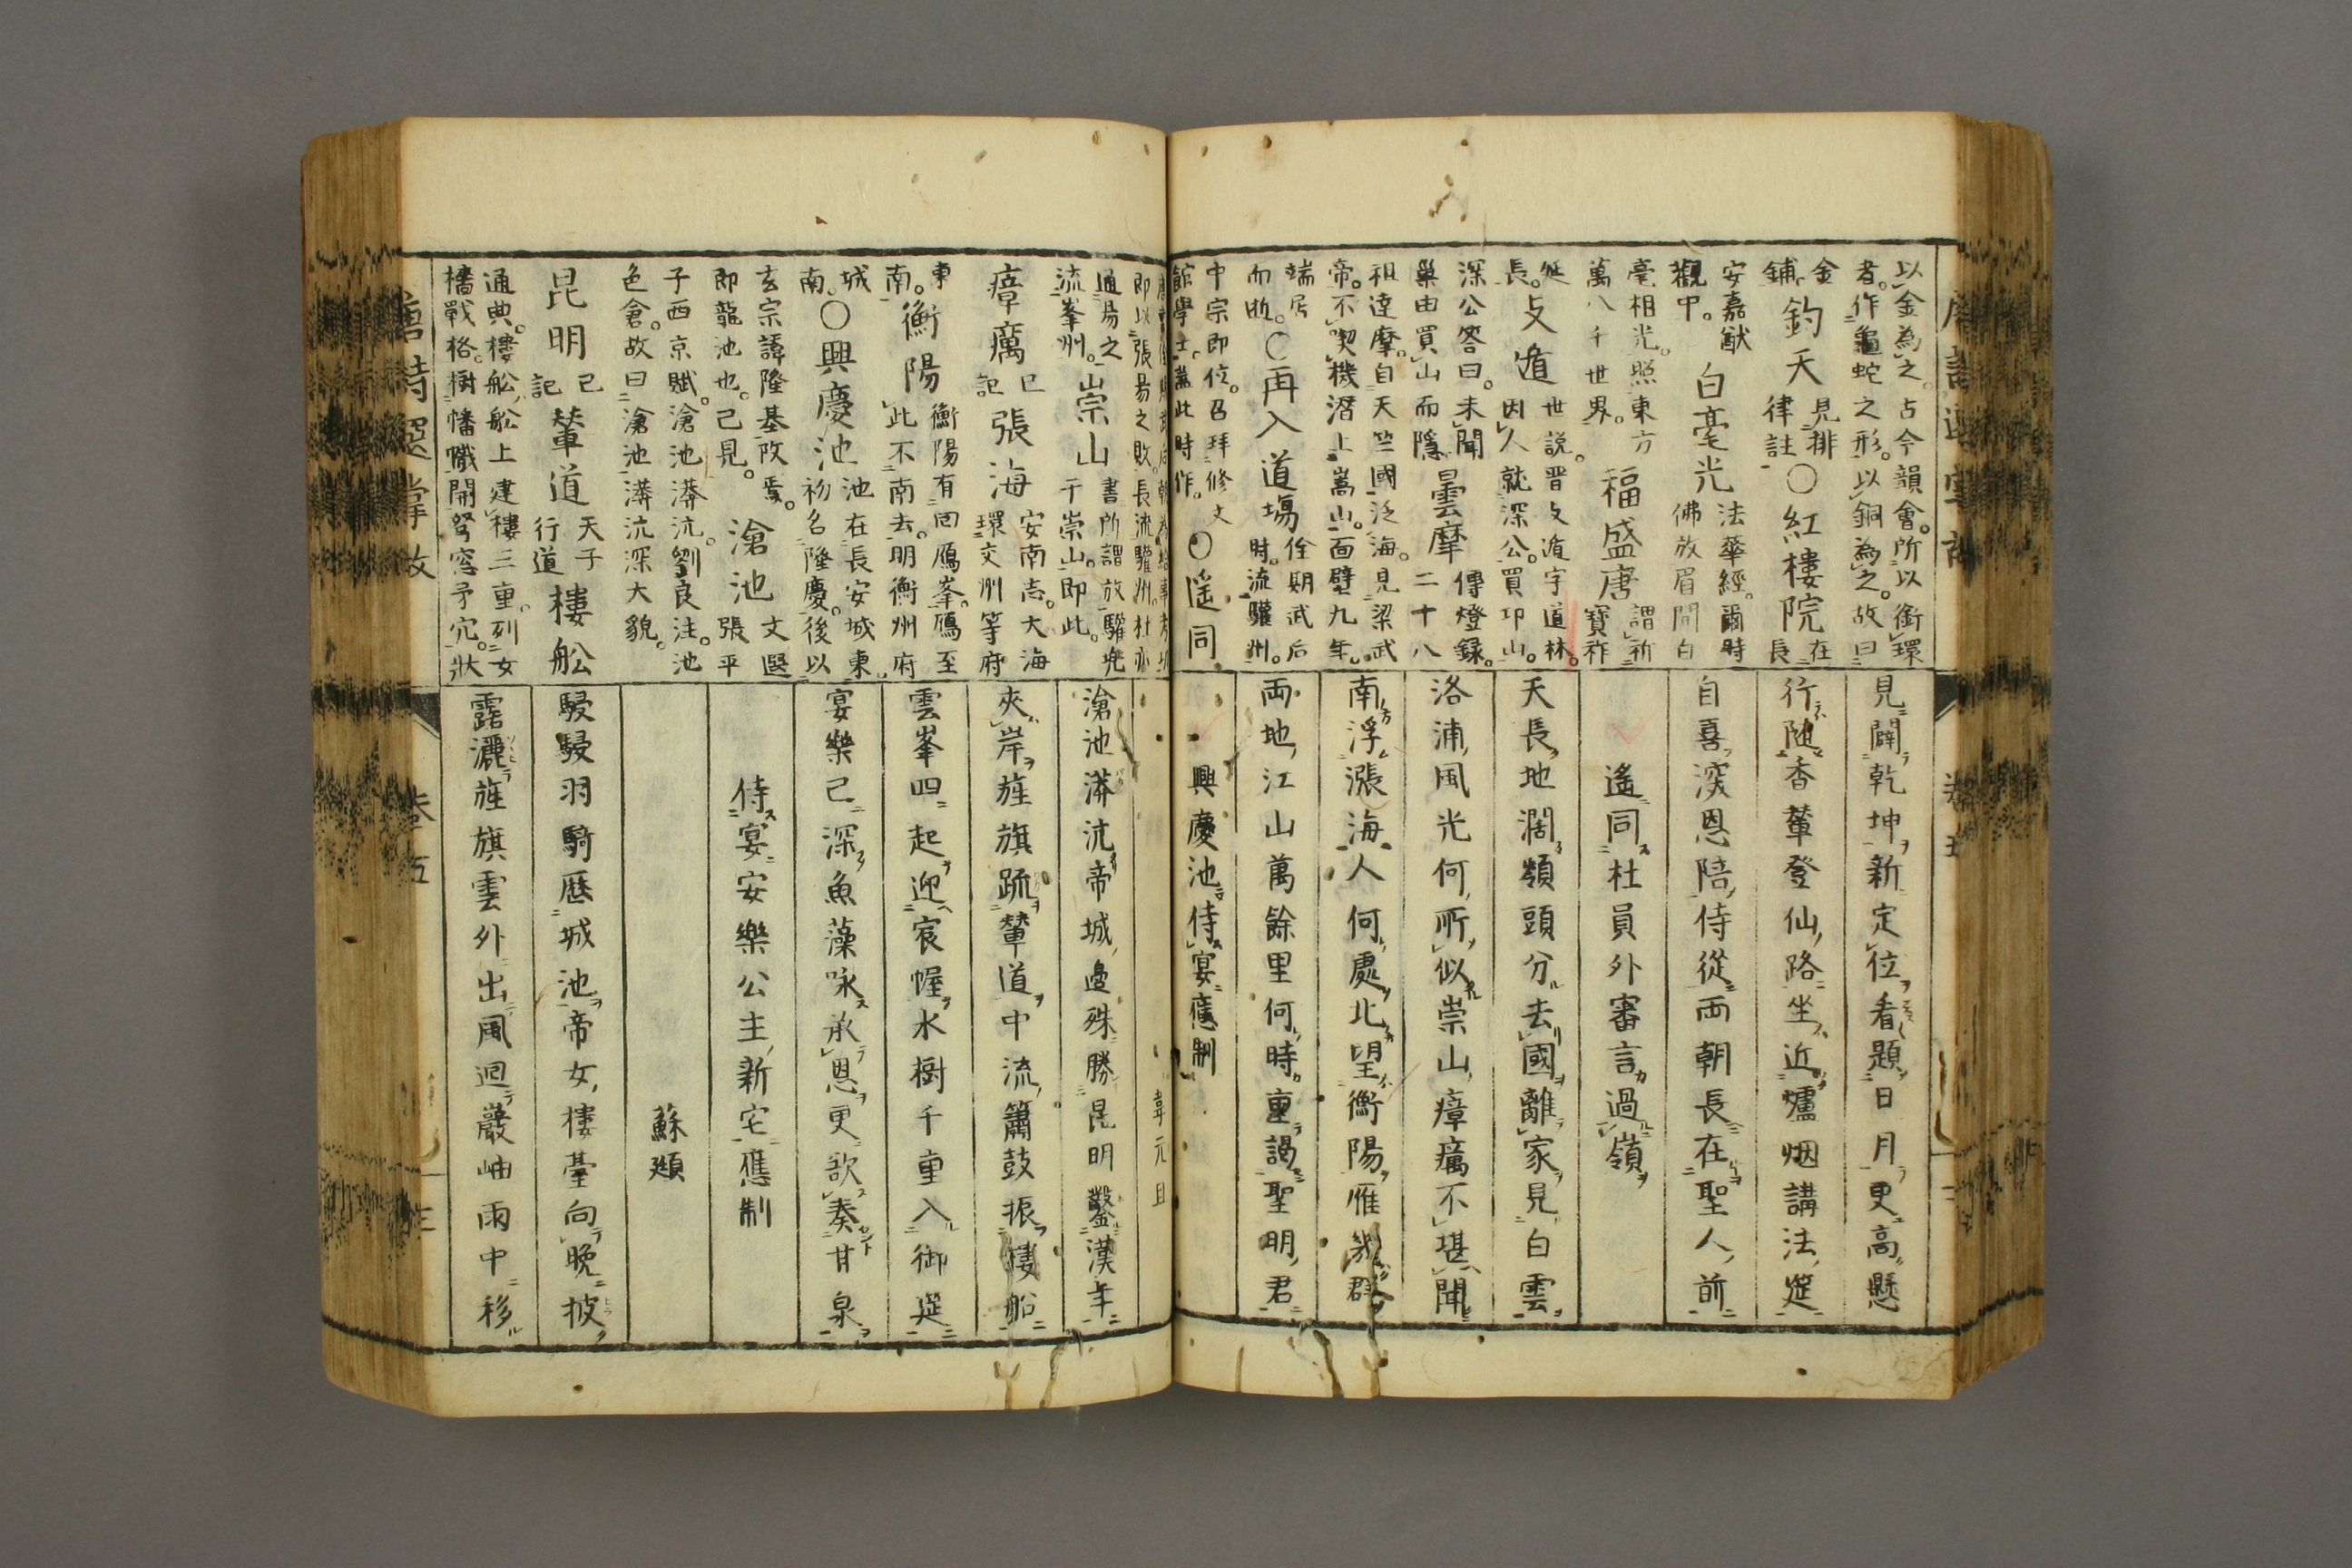 以金為之。古今韻會。所以銜環
者。作龜蛇之形。以銅為之。故曰
金鋪 鈞天 見排律註 ○紅樓院 在長
安嘉猷觀中。 白毫光 法華經。爾時佛放眉間白
毫相光。照東方萬八千世界。 福盛唐 謂新寶祚
延長。 支遁 世説。晋支遁字道林。因人就深公。買卬山。
深公答曰。未聞巢由買山而隱 曇摩 傳燈録。二十八
祖達摩。自天竺國泛海。見梁武
帝。不契機潛上嵩山。面壁九年。
端居而逝。 ○再入道塲 佺期武后時。流驩州。
中宗即位。召拜修文館學士。蓋此時作。 ○遥同
見闢乾坤新定位看題日月更高懸
行隨香輦登仙路坐近爐烟講法筵
自喜深恩陪侍從兩朝長在聖人前
遙同杜員外審言過嶺
天長地濶嶺頭分去國離家見白雲
洛浦風光何所似崇山瘴癘不堪聞
南浮漲海人何處北望衡陽雁幾群
兩地江山萬餘里何時重謁聖明君
興慶池侍宴應制
即以張易之敗。長流驩州。杜亦
通易之流峯州。 崇山 書所謂放驩兜于崇山。即此。
瘴癘 已記 張海 安南志。大海環交州等府
東南。 衡陽 衡陽有回鴈峯。鴈至此不南去。明衡州府
城南。 ○興慶池 池在長安城東。初名隆慶。後以
玄宗諱隆基改焉。即龍池也。已見。 滄池 文選張平
子西京賦。滄池漭沆。劉良注。池
色倉。故曰滄池漭沆深大貌。
昆明 已記 輦道 天子行道 樓舩
通典。樓舩舩上建樓三重。列女
檣戰格。樹幡幟開弩窓矛穴。狀
韋元旦
滄池漭沆帝城邊殊勝昆明鑿漢年
夾岸旌旗疏輦道中流簫鼓振樓船
雲峯四起迎宸幄水樹千重入御筵
宴樂已深魚藻咏承恩更欲奏甘泉
侍宴安樂公主新宅應制
蘇頲
駸駸羽騎歷城池帝女樓臺向晚披
露灑旌旗雲外出風迴巖岫雨中移
唐詩選掌故
卷五